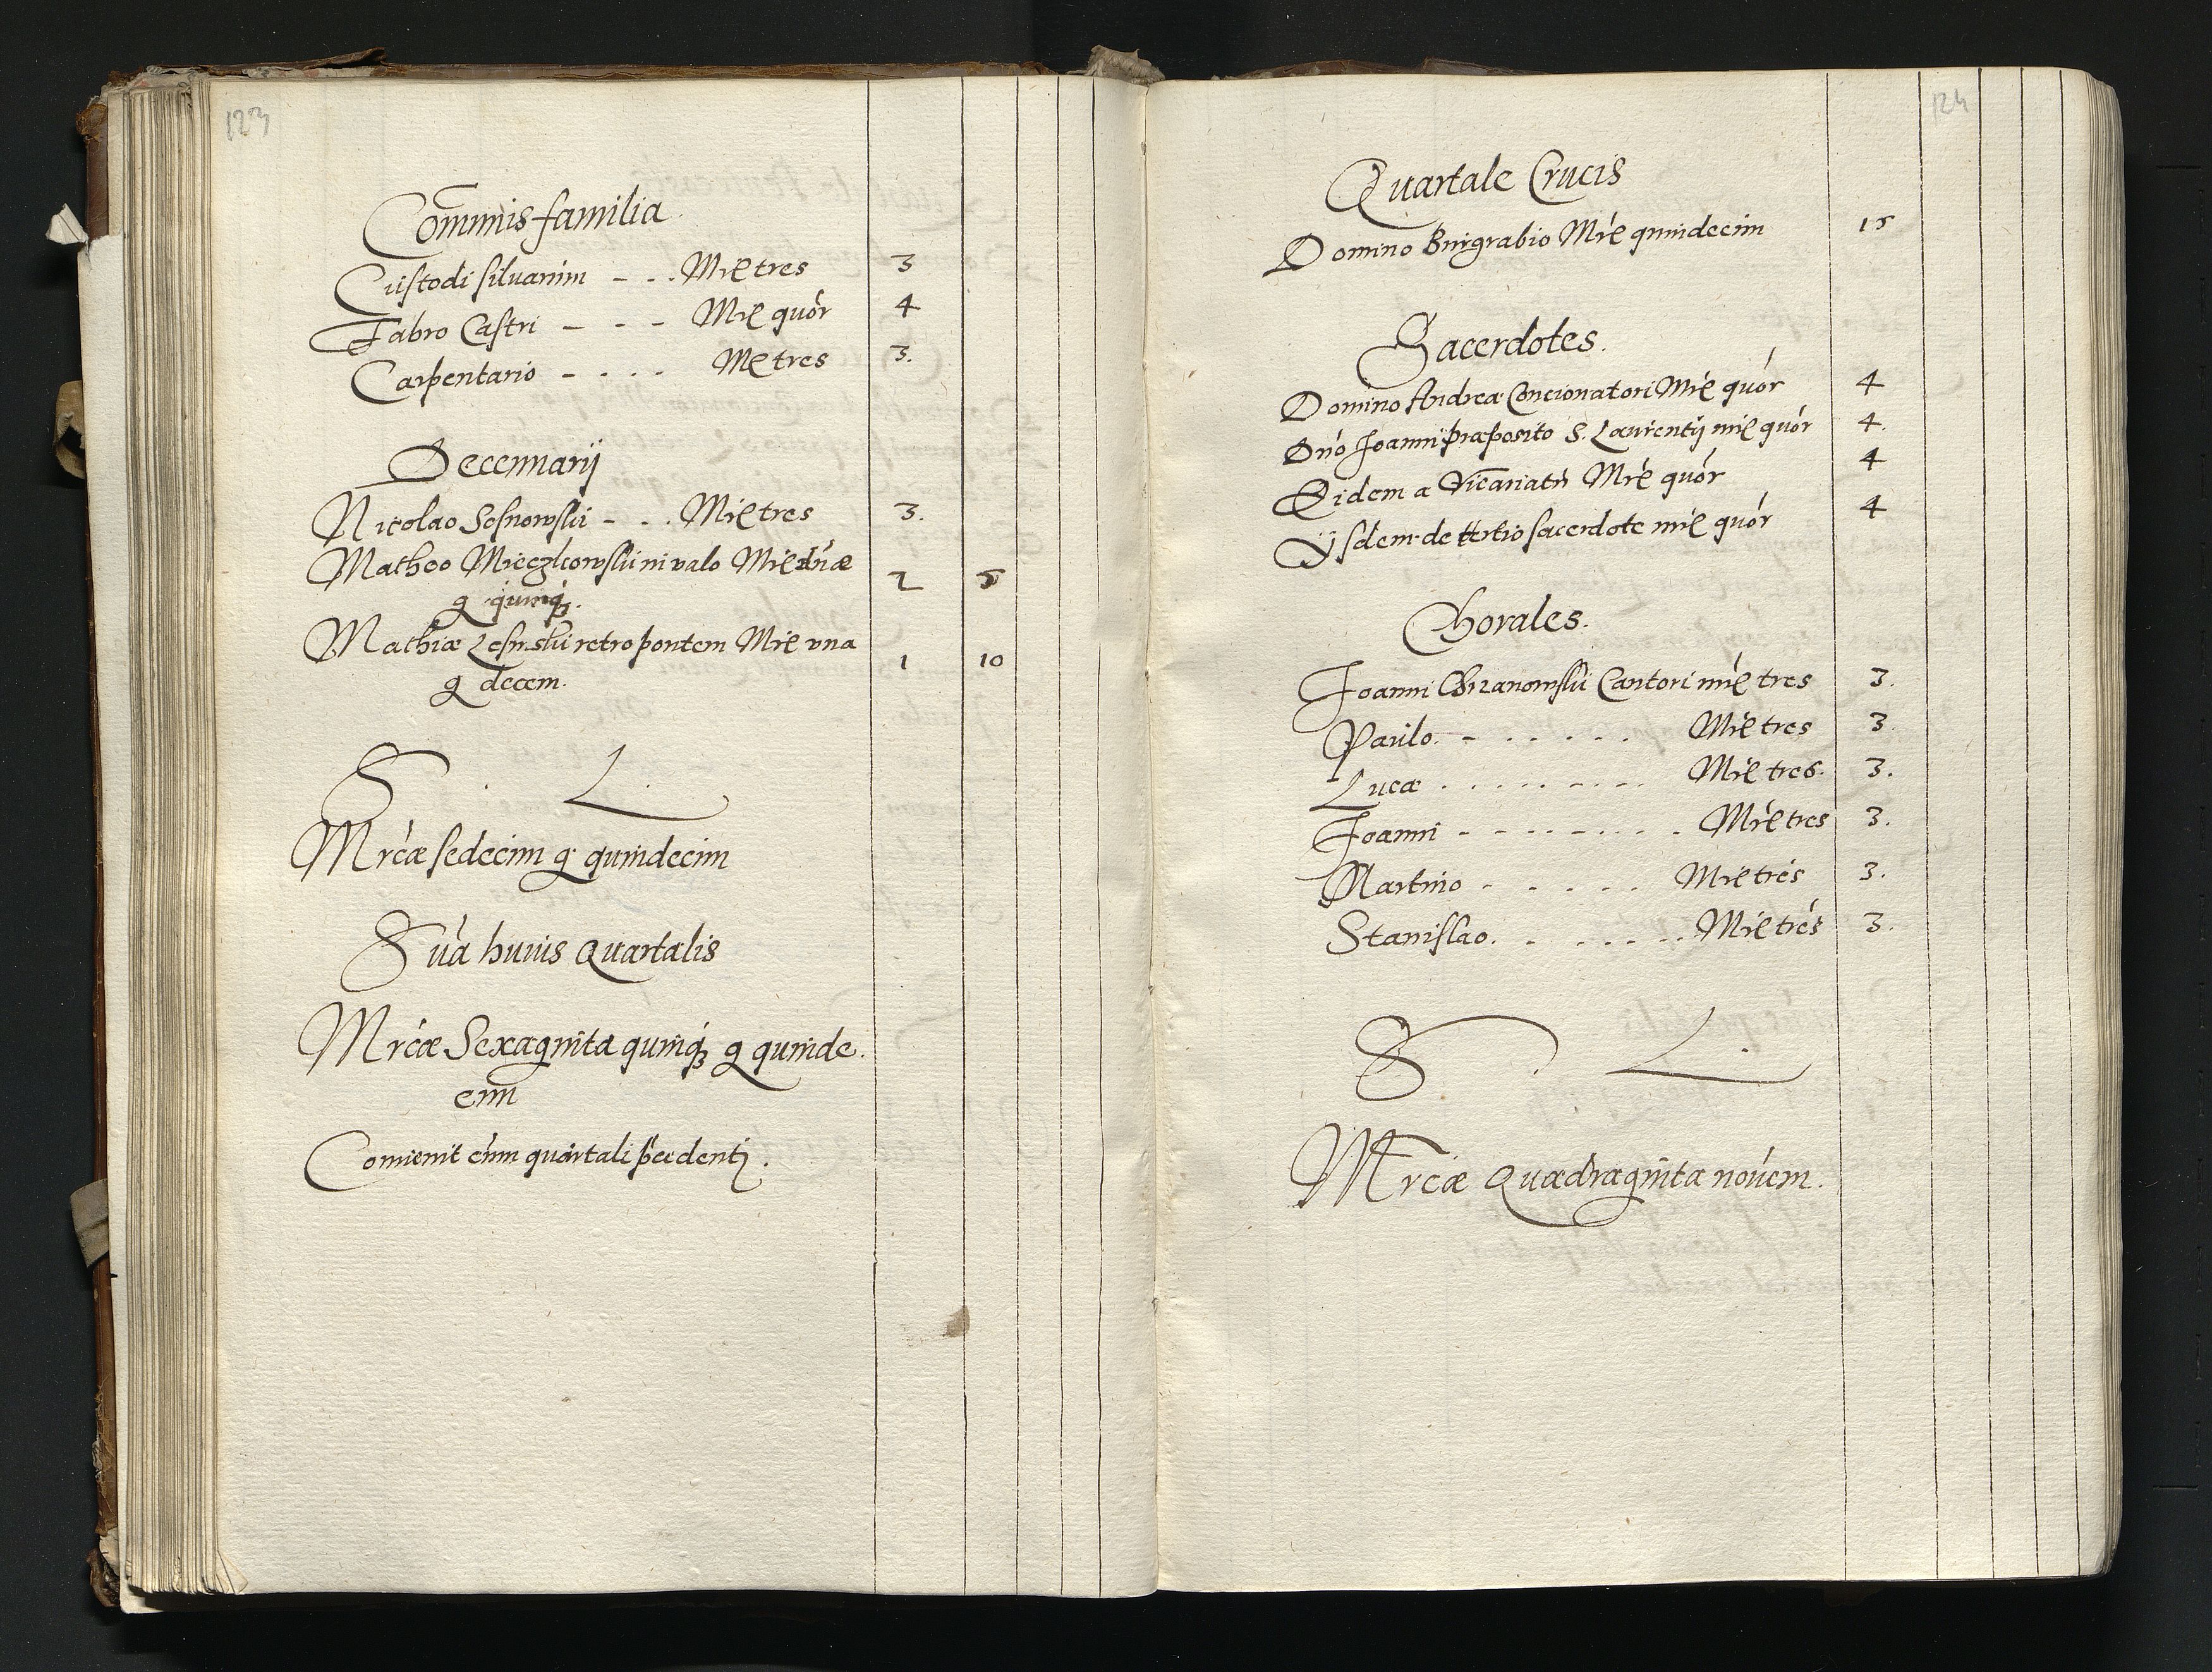 123
Com̄unis familia
Custodi siluarum - - . Mrc̄ tres 3
Fabro Castri - - - Mrc̄ quór 4
Carpentario - . . . Mc̄ tres 3.
Decennarij
Nicolao Sosnowski - - . Mrc̄ tres 3.
Matheo Mieczkowski in valo Mrc̄ duæ 2 5
g quinq.
Mathiæ Lesinski retro pontem Mrc̄ vna 1 10
g decem.
S . L .
Mrcæ sedecim g quindecim
Sūa huius Quartalis
Mrcæ Sexaginta quinq g quinde
cim
Conuenit cum quartali p̄cedenti.
124
Quartale Crucis
Domino Burgrabio Mrc̄ quindecim 15
Sacerdotes.
Domino Andreæ Concionatori Mrc̄ quór 4
Dn̄o Joanni præposito S. Laurentij mrc̄ quór 4.
Eidem a Vicariatu Mrc̄ quór 4
Ijsdem de tertio sacerdote mrc̄ quór 4
Chorales.
Joanni Chrzanowski Cantori mrc̄ tres 3.
Paulo. - . . . . . Mrc̄ tres 3.
Lucæ . . . . . - . - - Mrc̄ tres. 3.
Joanni - - - . - . - . . Mrc̄ tres 3.
Martino - . . . . Mrc̄ tres 3.
Stanislao. - . . . - . . Mrc̄ tres 3.
S . L .
Mrcæ Quadraginta nouem.